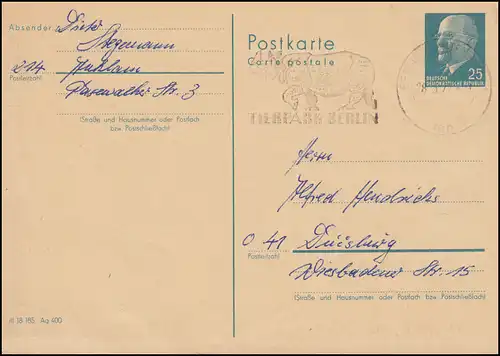 Absender: Dietz
Stegemann
214 Anklam
(Postleitzahl)
Pasewalker Str. 3
(Straße und Hausnummer oder Postfach
bzw. Postschließfach)
III 18 185 Ag 400
Postkarte
Carte postale
TIERPARK BERLIN
25
DEUTSCHE
DEMOKRATISCHE REPUBLIK
Herrn
Alfred Hendricks
041 Duisburg
(Postleitzahl)
Wiesbadener Str. 15
(Straße und Hausnummer oder Postfach bzw. Postschließfach)